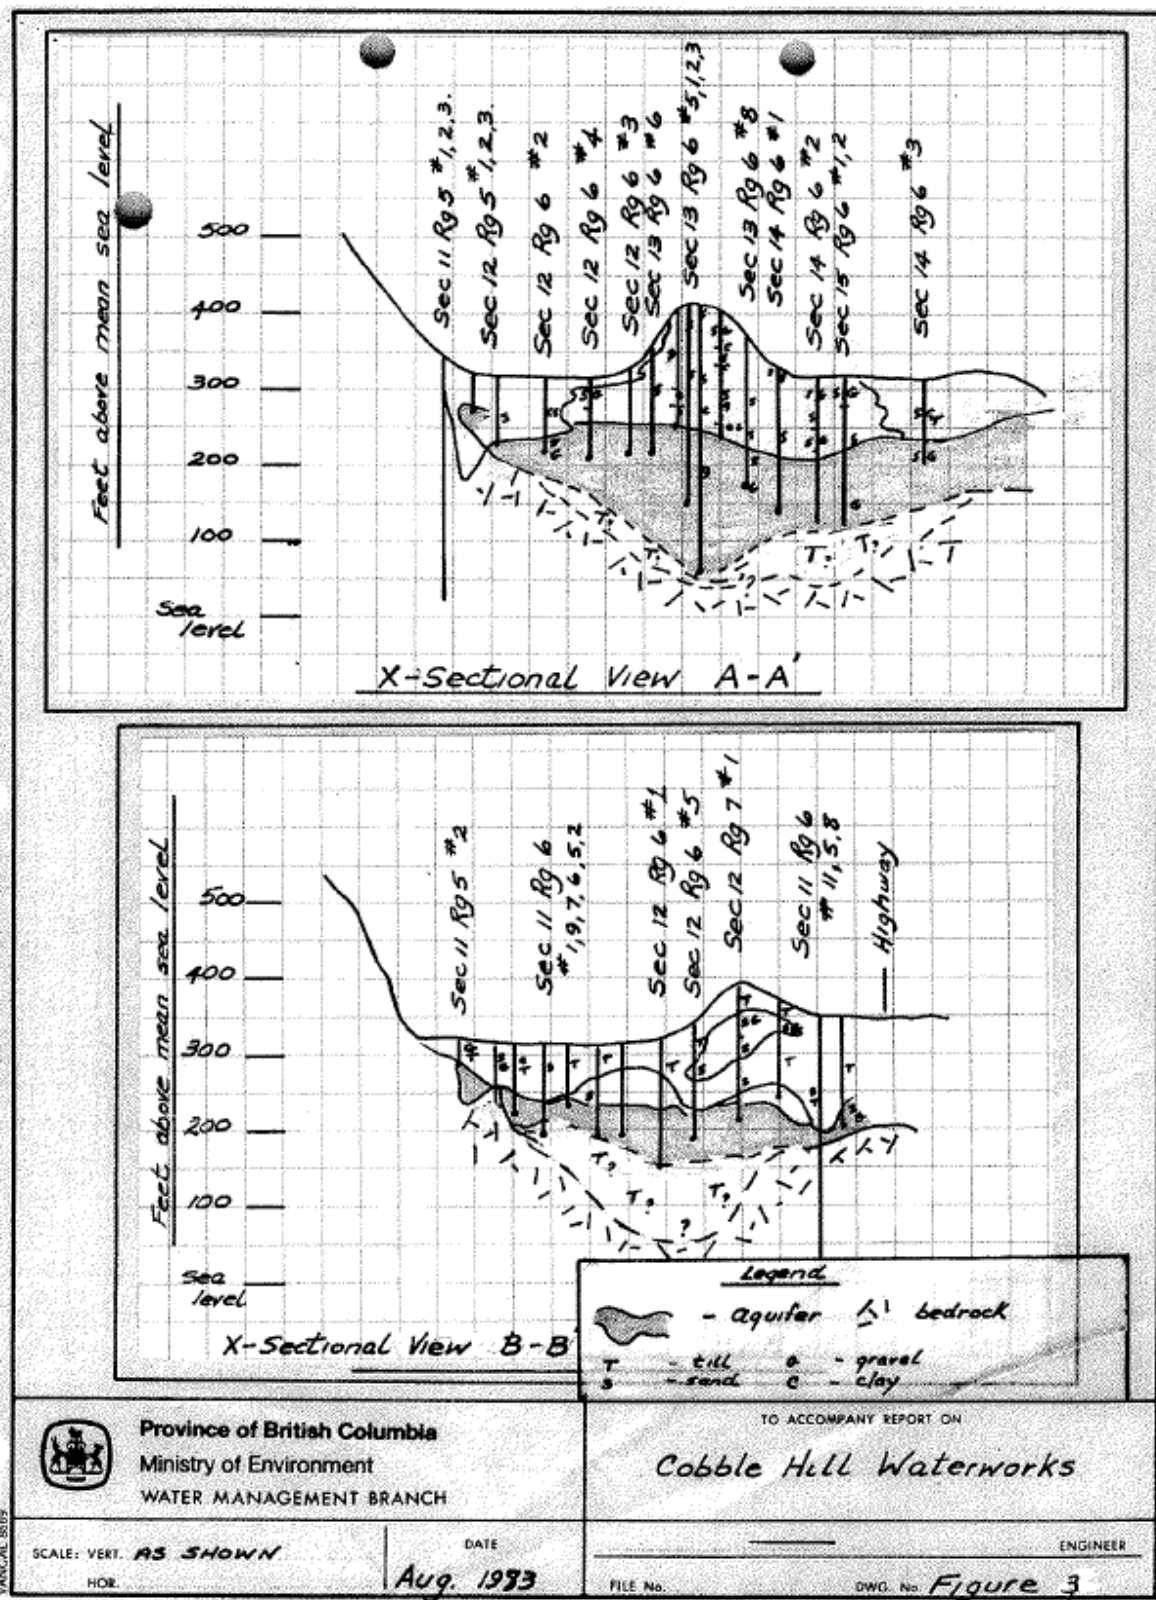 Feet above mean sea level
500
400
300
200
100
Sea level
Sec 11 Rg 5 #1,2,3.
Sec 12 Rg 5 #1,2,3.
Sec 12 Rg 6 #2
Sec 12 Rg 6 #4
Sec 12 Rg 6 #3
Sec 13 Rg 6 #6
Sec 13 Rg 6 #5,1,2,3
Sec 13 Rg 6 #8
Sec 14 Rg 6 #1
Sec 14 Rg 6 #2
Sec 15 Rg 6 #1,2
Sec 14 Rg 6 #3
T?
T?
?
X-Sectional View A-A'
Feet above mean sea level
500
400
300
200
100
Sea level
Sec 11 Rg 5 #2
Sec 11 Rg 6
#1,9,7,6,5,2
Sec 12 Rg 6 #1
Sec 12 Rg 6 #5
Sec 12 Rg 7 #1
Sec 11 Rg 6
#11,5,8
Highway
T?
T?
T?
?
X-Sectional View B-B'
Legend
- aquifer
bedrock
T - till
G - gravel
S - sand
C - clay
Province of British Columbia
Ministry of Environment
WATER MANAGEMENT BRANCH
TO ACCOMPANY REPORT ON
Cobble Hill Waterworks
SCALE: VERT. AS SHOWN
HOR.
DATE
Aug. 1983
ENGINEER
FILE No.
DWG. No. Figure 3